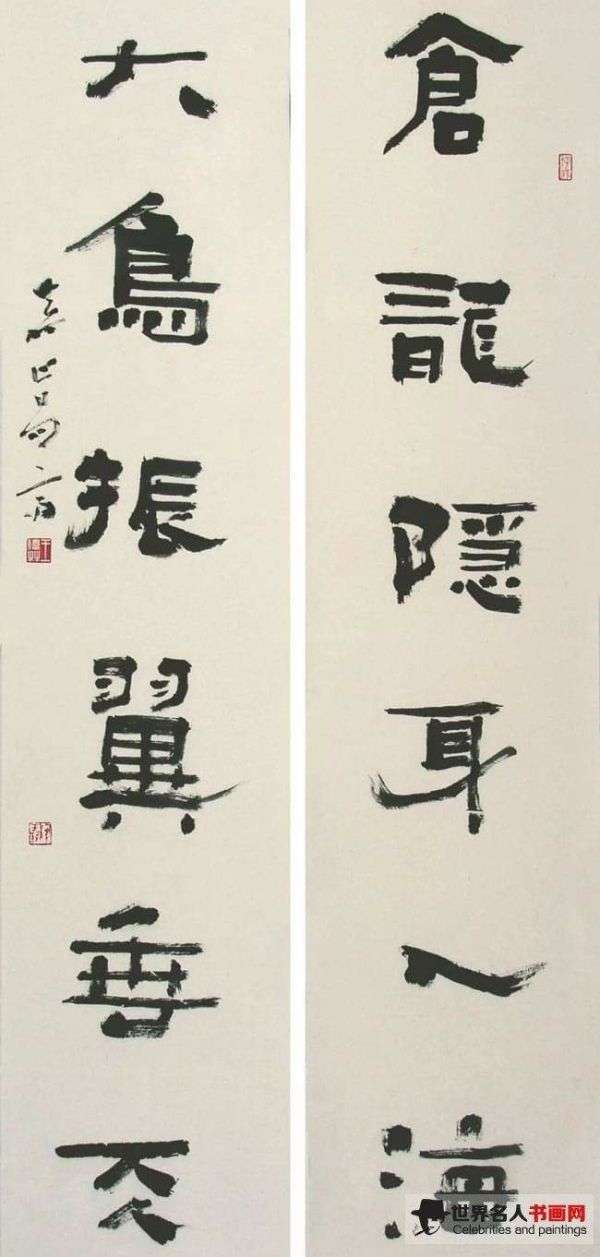 倉龍隱耳入海
大鳥振翼垂天
世界名人书画网
Celebrities and paintings